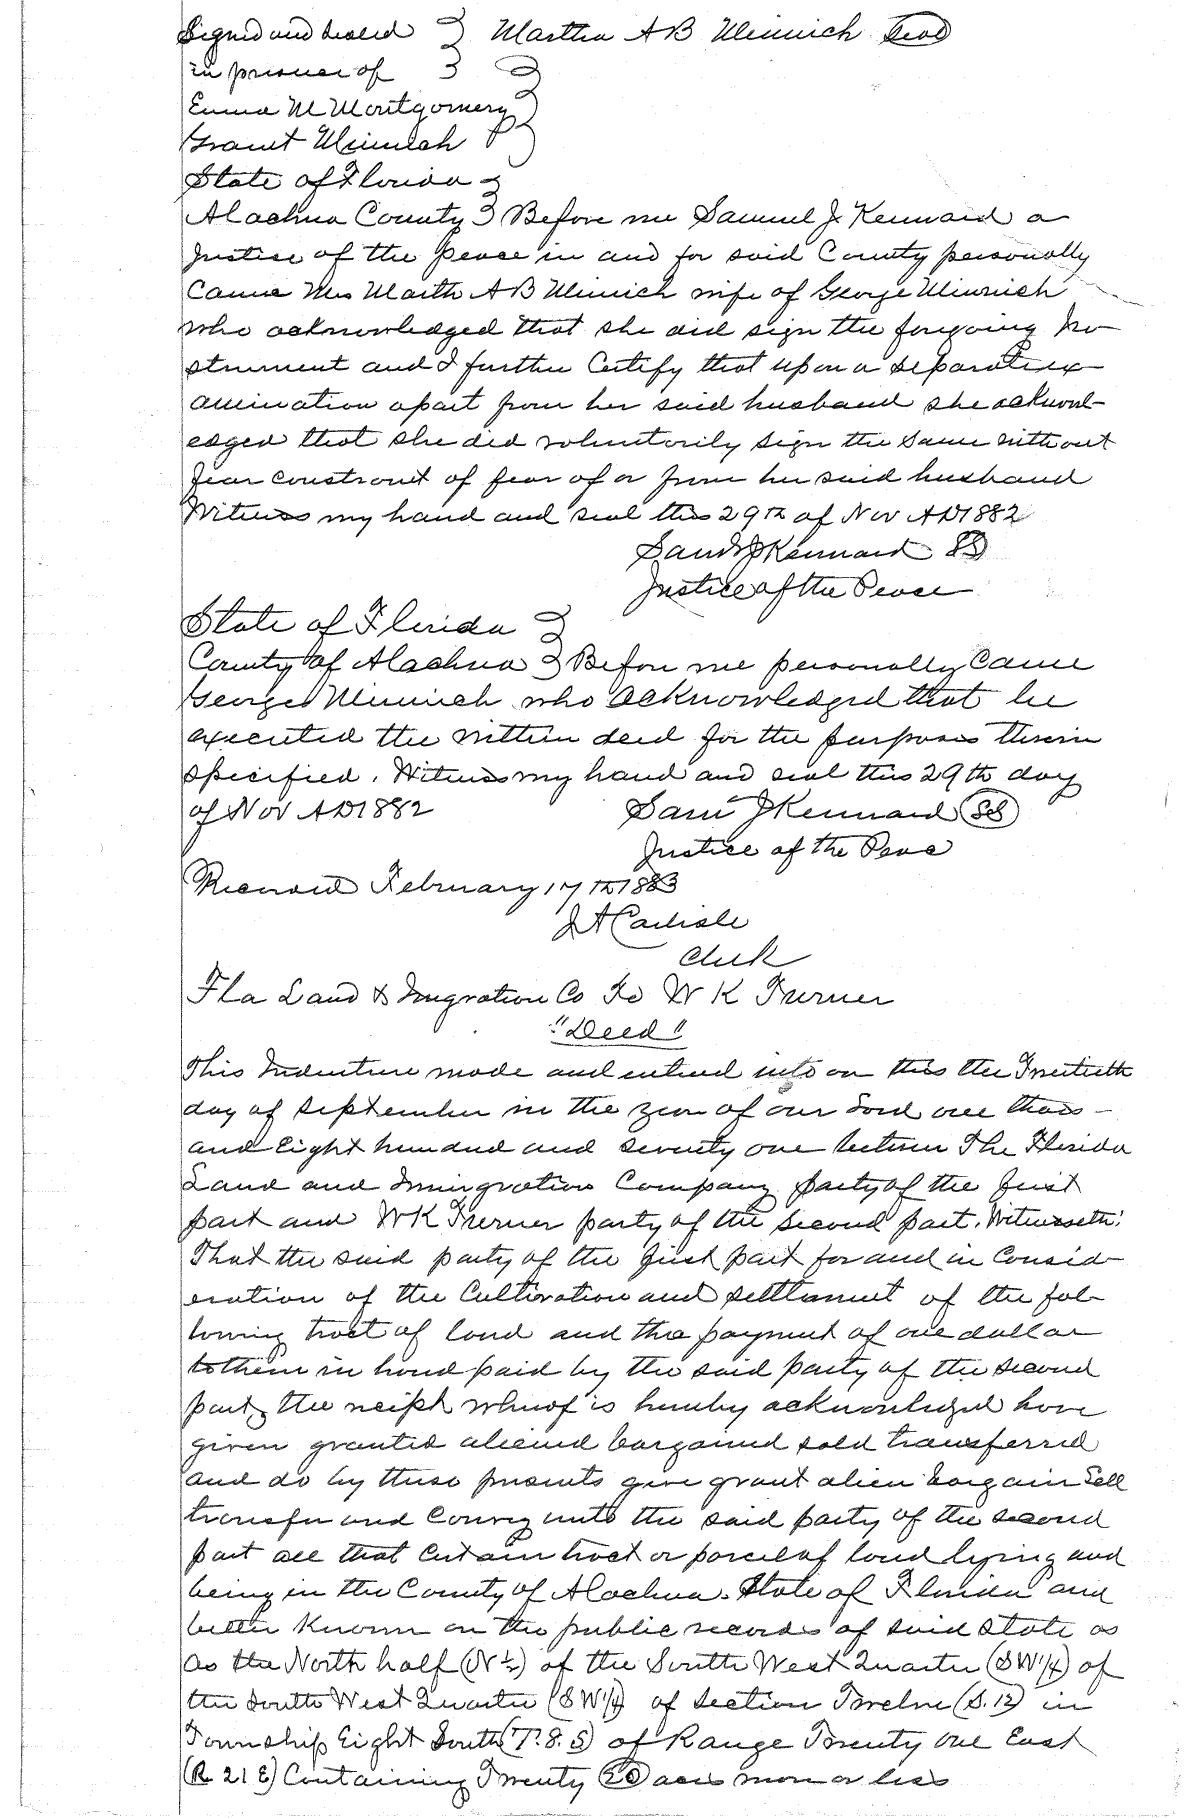 Signed and Sealed } Martha A B Minnich Seal
in presence of }
Emma M Montgomery }
Grant Minnich }
State of Florida }
Alachua County } Before me Samuel J. Kennard a
Justice of the peace in and for said County personally
Came Mrs Marth A B Minnich wife of George Minnich
who acknowledged that she did sign the forgoing In-
strument and I further Certify that upon a separate ex-
amination apart from her said husband she acknowl-
edged that she did voluntarily sign the same without
fear constraint of fear of or from her said husband
Witness my hand and seal this 29th of Nov AD1882
Saml J Kennard SS
Justice of the Peace
State of Florida }
County of Alachua } Before me personally Came
George Minnich who acknowledged that he
executed the within deed for the purposes therein
specified. Witness my hand and seal this 29th day
of Nov AD1882 Saml J Kennard SS
Justice of the Peace
Record February 17th 1883
J A Carlisle
Clerk
Fla Land & Imigration Co To W K Turner
"Deed"
This Indenture made and entered into on this the Twentieth
day of September in the year of our Lord one thous-
and Eight hundred and seventy one between The Florida
Land and Immigration Company party of the first
part and W K Turner party of the second part. Witnesseth:
That the said party of the first part for and in Consid-
eration of the Cultivation and settlement of the fol-
lowing tract of land and the payment of one dollar
to them in hand paid by the said party of the second
part, the reciept whereof is hereby acknowledged have
given granted aliened bargained sold transferred
and do by these presents give grant alien bargain Sell
transfer and Convey unto the said party of the second
part all that certain tract or parcel of land lying and
being in the County of Alachua. State of Florida and
better known on the public records of said State as
as the North half (N ½) of the South West Quarter (SW¼) of
the South West Quarter (SW¼) of Section Twelve (S. 12) in
Township Eight South (T. 8. S) of Range Twenty one East
(R 21 E) Containing Twenty 20 acres more or less